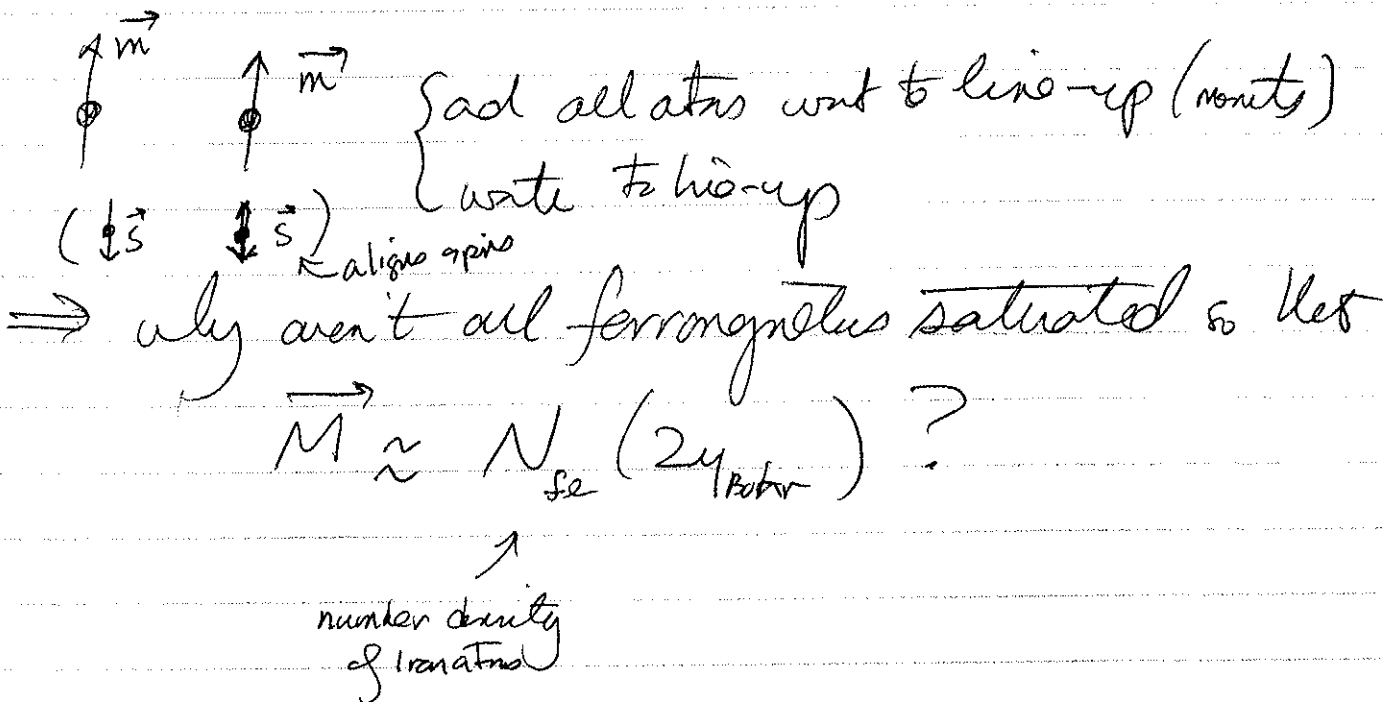 m⃗ m⃗ { ad all atms want to line-up (moments)
wante to line-up
( s⃗ s⃗ ) ← aligns spins
⇒ why aren't all ferromagnetics saturated so that
M⃗ ≈ N_fe (2μ_Bohr) ?
↗
number density
of iron atoms